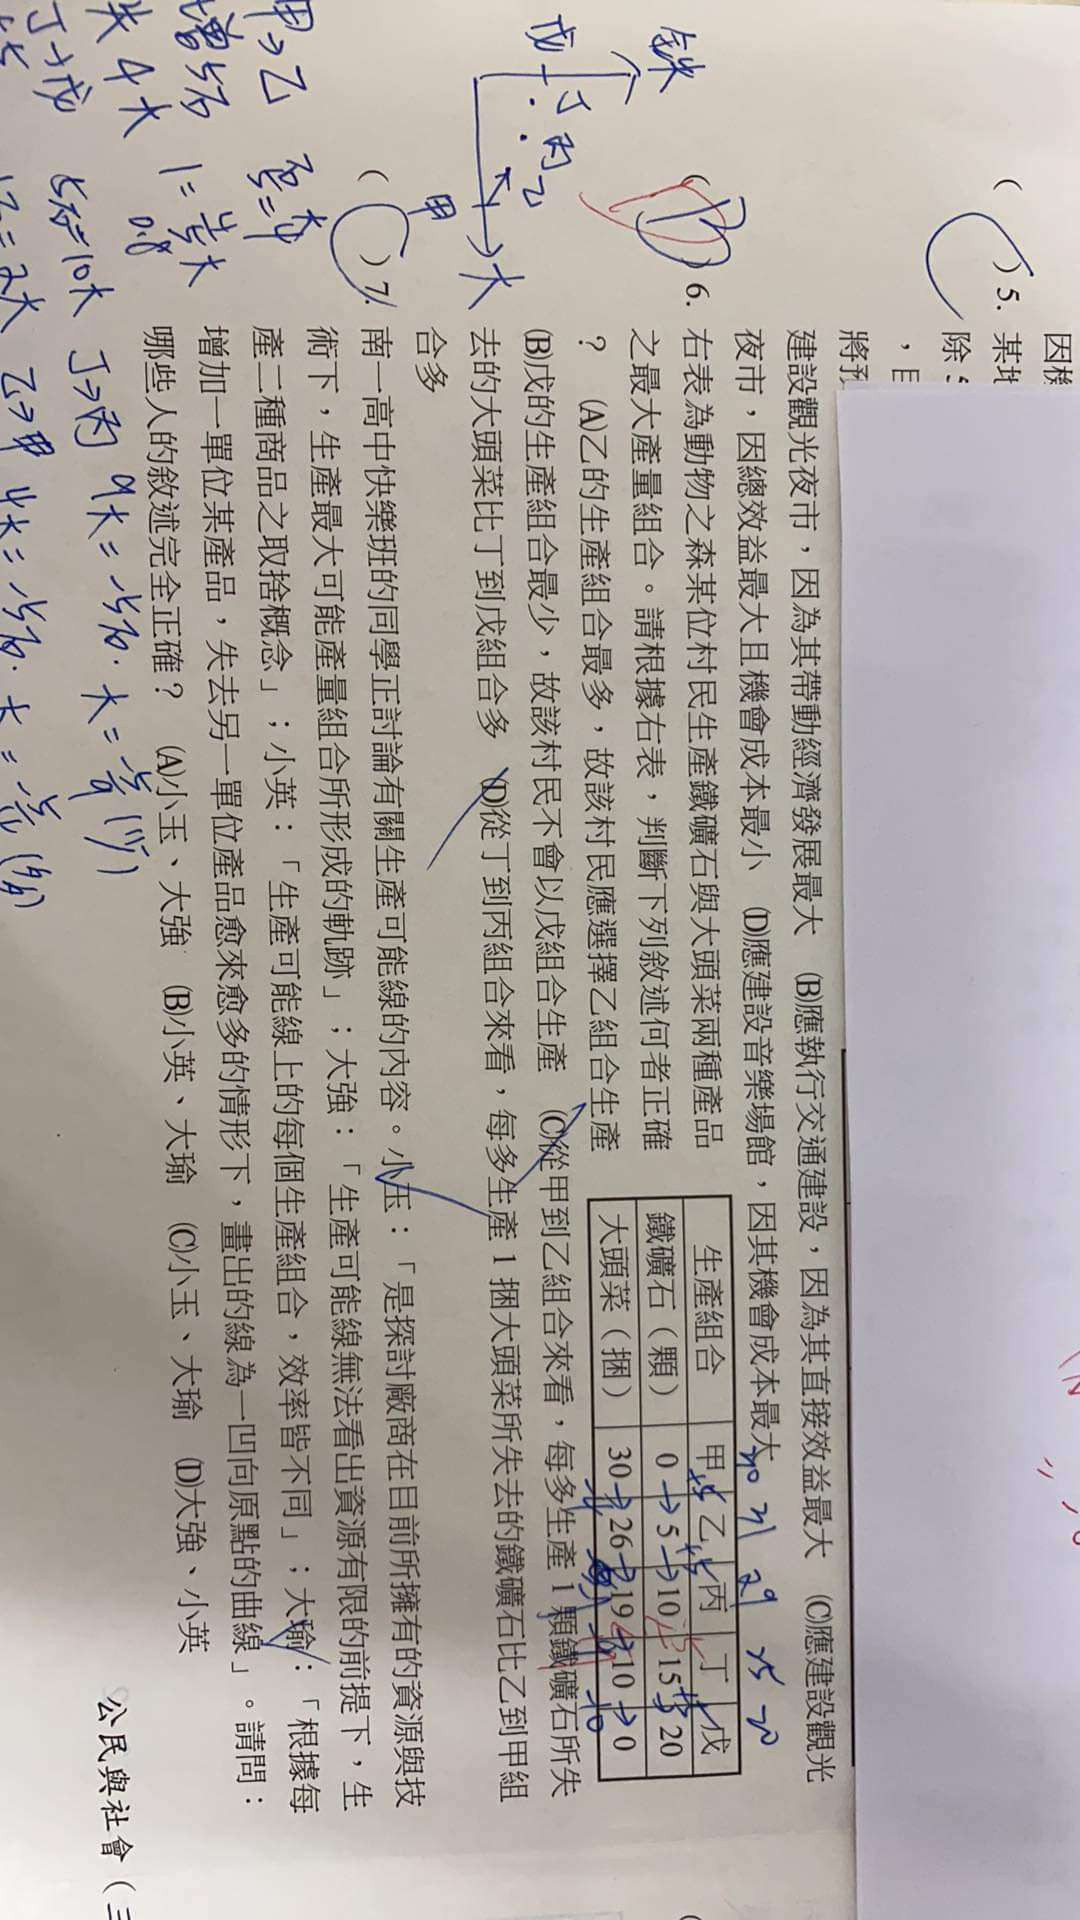 因機
( )5. 某地
除
將預
建設觀光夜市，因為其帶動經濟發展最大　(B)應執行交通建設，因為其直接效益最大　(C)應建設觀光
夜市，因總效益最大且機會成本最小　(D)應建設音樂場館，因其機會成本最大
(B)6. 右表為動物之森某位村民生產鐵礦石與大頭菜兩種產品
之最大產量組合。請根據右表，判斷下列敘述何者正確
？　(A)乙的生產組合最多，故該村民應選擇乙組合生產
(B)戊的生產組合最少，故該村民不會以戊組合生產　(C)從甲到乙組合來看，每多生產1顆鐵礦石所失
去的大頭菜比丁到戊組合多　(D)從丁到丙組合來看，每多生產1捆大頭菜所失去的鐵礦石比乙到甲組
合多
30 31 29 25 20
生產組合 甲 乙 丙 丁 戊
鐵礦石（顆） 0 5 10 15 20
大頭菜（捆） 30 26 19 10 0
鐵
戊 丁 丙 乙
甲
大
( )7. 南一高中快樂班的同學正討論有關生產可能線的內容。小玉：「是探討廠商在目前所擁有的資源與技
術下，生產最大可能產量組合所形成的軌跡」；大強：「生產可能線無法看出資源有限的前提下，生
產二種商品之取捨概念」；小英：「生產可能線上的每個生產組合，效率皆不同」；大瑜：「根據每
增加一單位某產品，失去另一單位產品愈來愈多的情形下，畫出的線為一凹向原點的曲線」。請問：
哪些人的敘述完全正確？　(A)小玉、大強　(B)小英、大瑜　(C)小玉、大瑜　(D)大強、小英
甲→乙
失 4 大
0.8
丁→戊
丁→丙
乙→甲
公民與社會（三